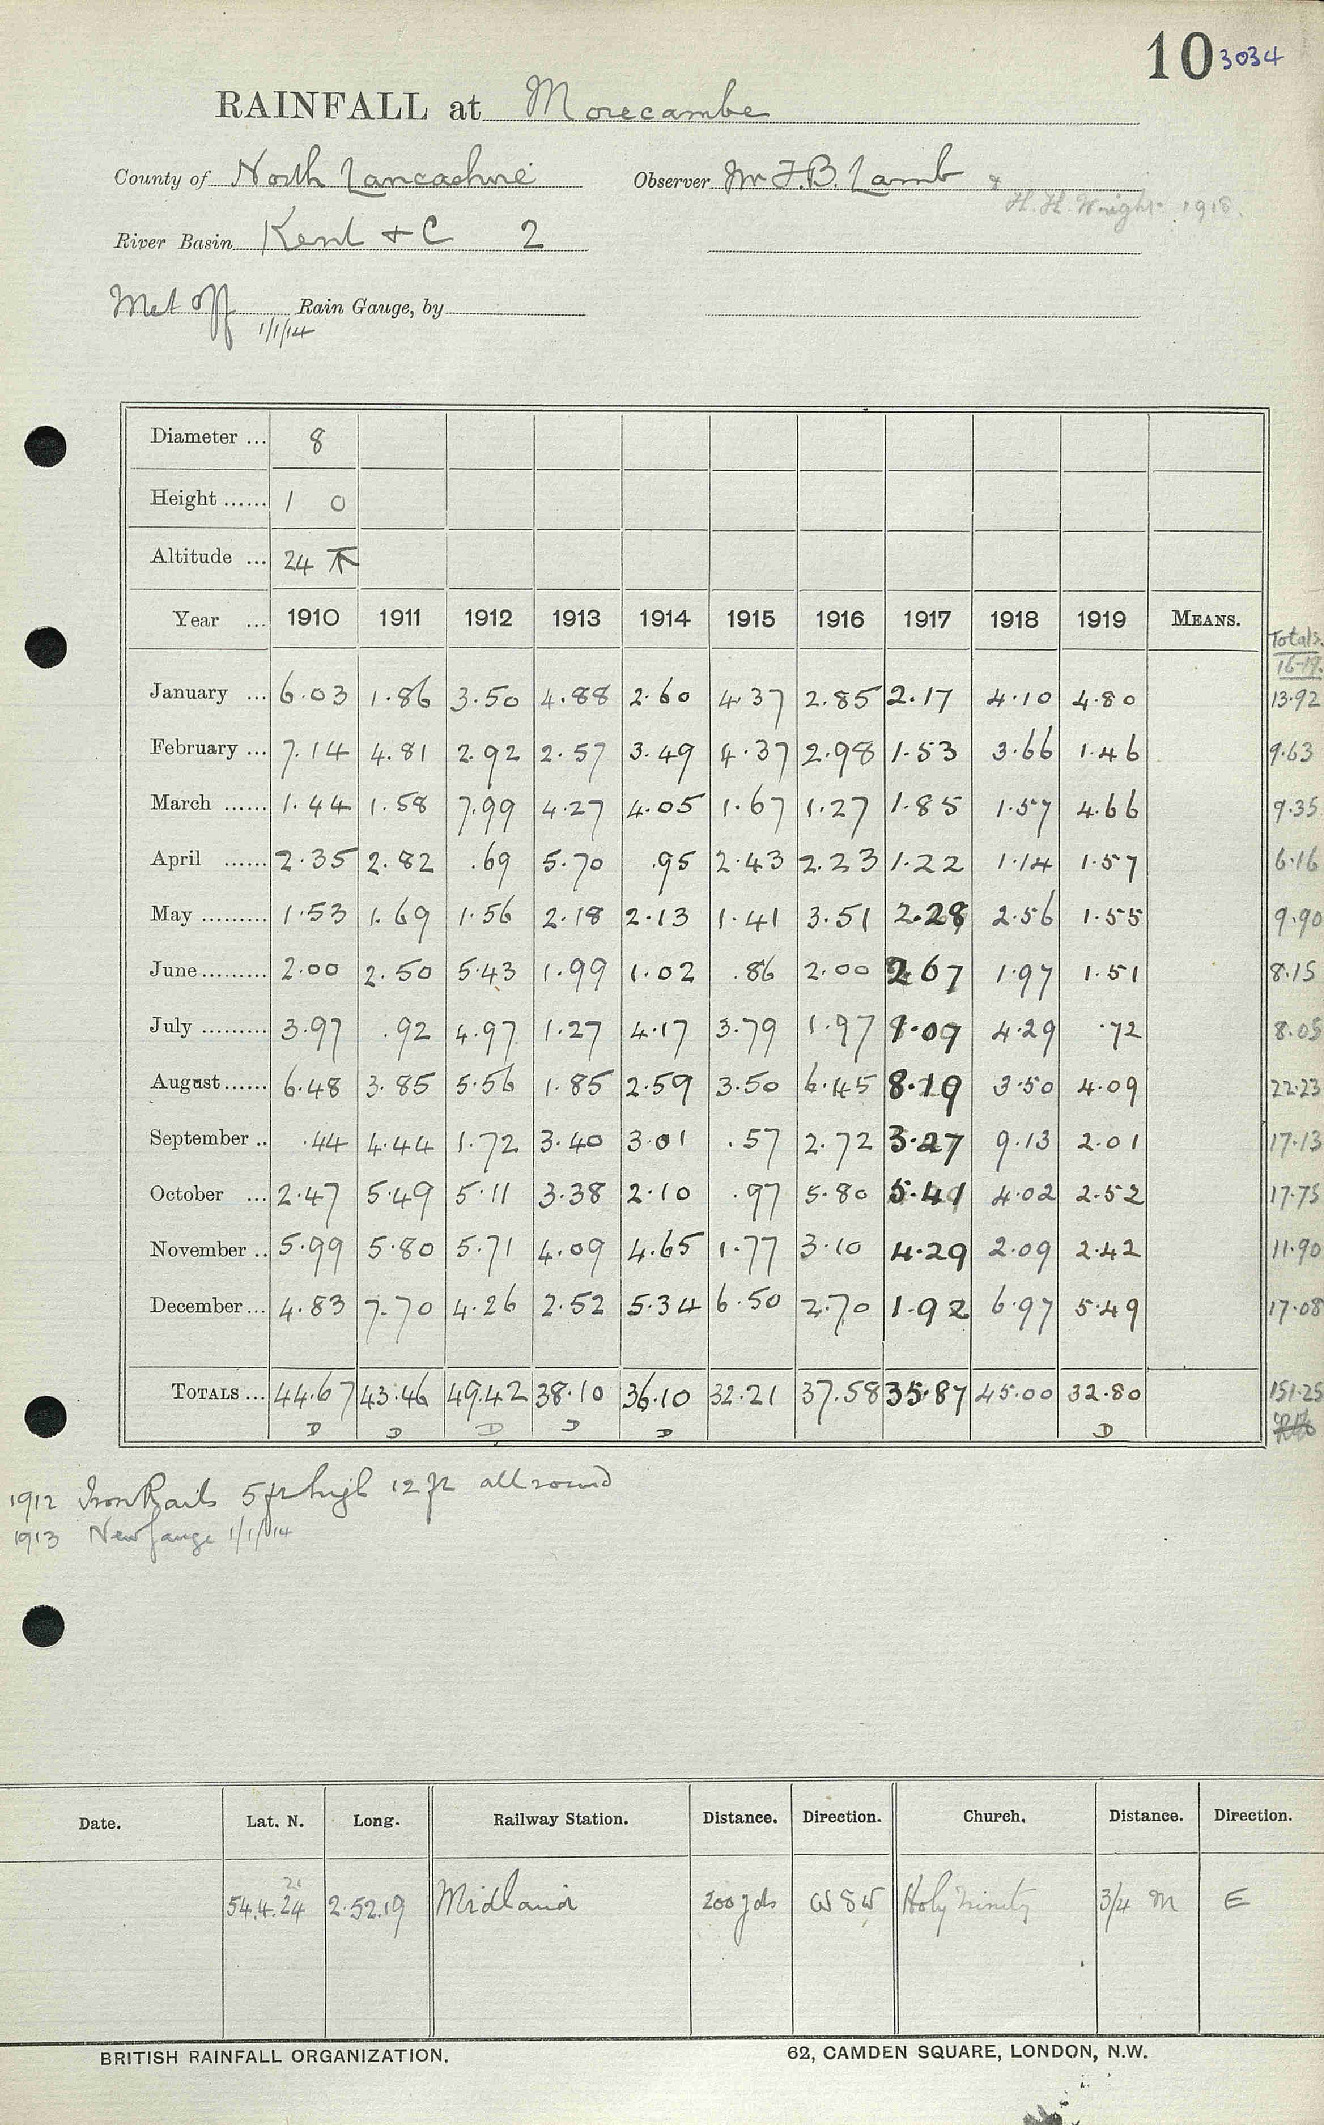 10 3034
RAINFALL at Morecambe
County of North Lancashire Observer Mr F.B. Lamb &
H. H. Wright 1918.
River Basin Kent & C 2
Met Off Rain Gauge, by
1/1/14
Diameter ... 8
Height ...... 1 0
Altitude ... 24
Year ... 1910 1911 1912 1913 1914 1915 1916 1917 1918 1919 MEANS. Totals. 16-19.
January ... 6.03 1.86 3.50 4.88 2.60 4.37 2.85 2.17 4.10 4.80 13.92
February ... 7.14 4.81 2.92 2.57 3.49 4.37 2.98 1.53 3.66 1.46 9.63
March ...... 1.44 1.58 7.99 4.27 4.05 1.67 1.27 1.85 1.57 4.66 9.35
April ...... 2.35 2.82 .69 5.70 .95 2.43 2.23 1.22 1.14 1.57 6.16
May ......... 1.53 1.69 1.56 2.18 2.13 1.41 3.51 2.28 2.56 1.55 9.90
June ......... 2.00 2.50 5.43 1.99 1.02 .86 2.00 2.67 1.97 1.51 8.15
July ......... 3.97 .92 4.97 1.27 4.17 3.79 1.97 1.07 4.29 .72 8.05
August ...... 6.48 3.85 5.56 1.85 2.59 3.50 6.45 8.19 3.50 4.09 22.23
September .. .44 4.44 1.72 3.40 3.01 .57 2.72 3.27 9.13 2.01 17.13
October ... 2.47 5.49 5.11 3.38 2.10 .97 5.80 5.41 4.02 2.52 17.75
November .. 5.99 5.80 5.71 4.09 4.65 1.77 3.10 4.29 2.09 2.42 11.90
December ... 4.83 7.70 4.26 2.52 5.34 6.50 2.70 1.92 6.97 5.49 17.08
TOTALS ... 44.67 43.46 49.42 38.10 36.10 32.21 37.58 35.87 45.00 32.80 151.25
D D D D D D
1912 Iron Rails 5 ft high 12 ft all round
1913 New Gauge 1/1/14
Date. Lat. N. Long. Railway Station. Distance. Direction. Church. Distance. Direction.
54.4.24 2.52.19 Midland 200 yds WSW Holy Trinity 3/4 m E
BRITISH RAINFALL ORGANIZATION. 62, CAMDEN SQUARE, LONDON, N.W.